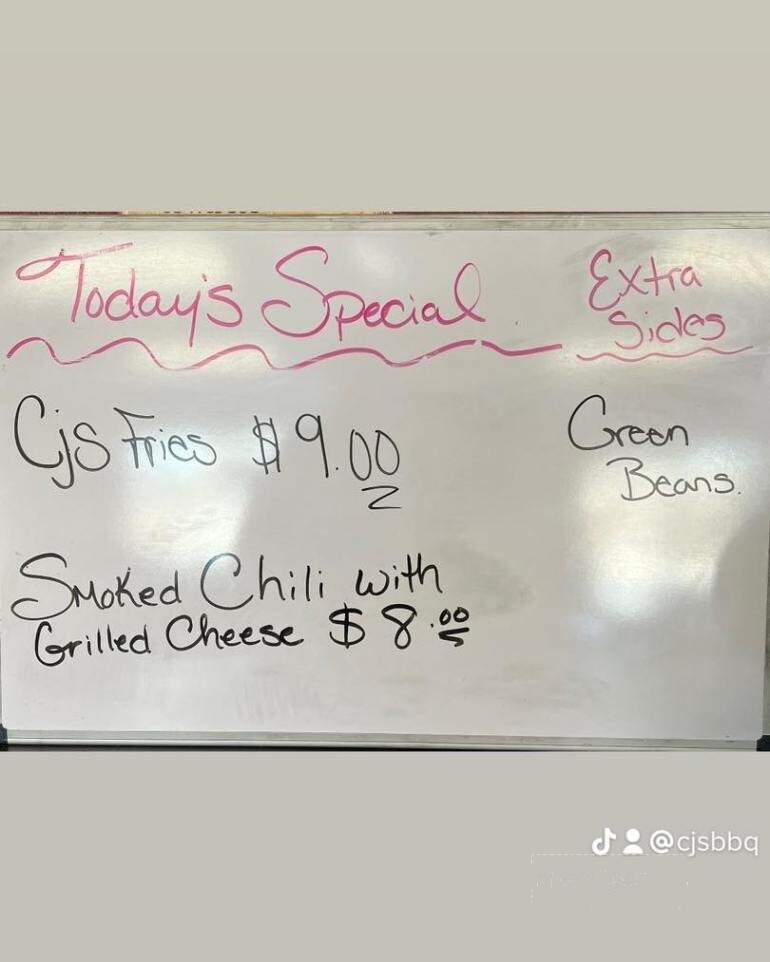 Today's Special
Extra
Sides
Cjs Fries $9.00
Green
Beans.
Smoked Chili with
Grilled Cheese $8.00
@cjsbbq